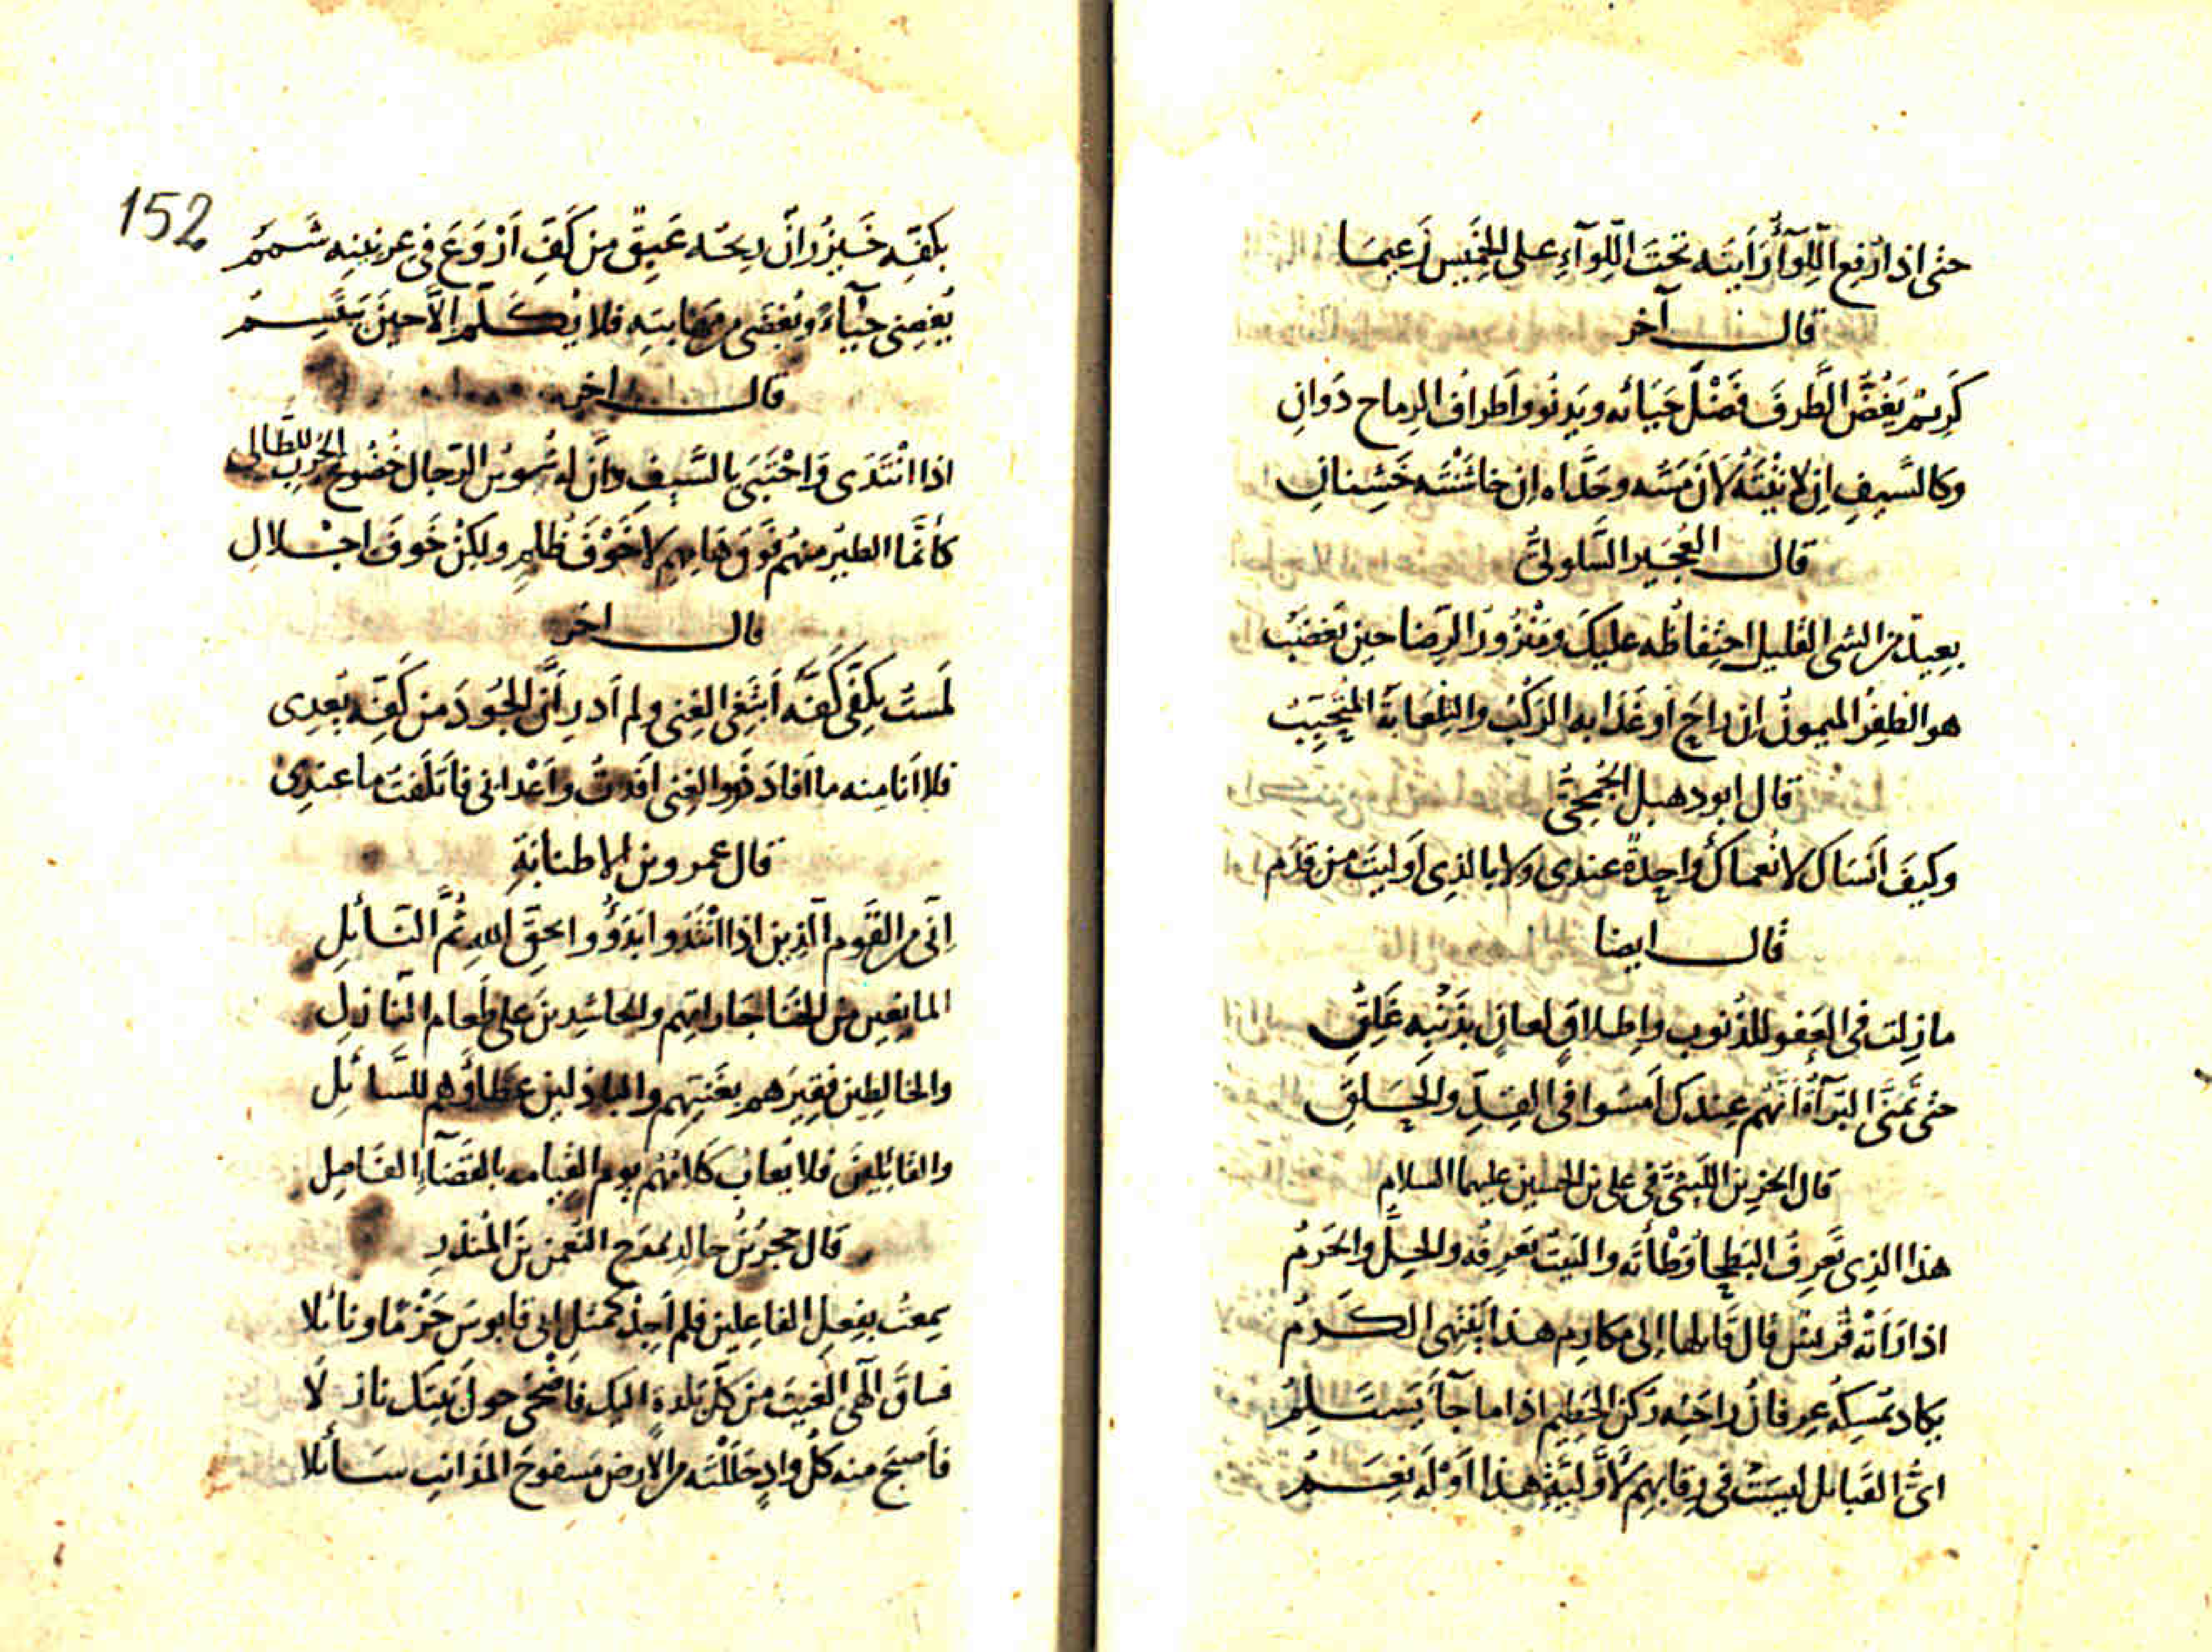 حتى اذا رُفِعَ اللِّوَآءُ رَأيتَه تحتَ اللِّوآءِ على الخميس زَعيمَا
قال آخر
كَرِيمٌ يَغُضُّ الطَّرفَ فَضْلَ حَيَائه ويَدنُو واَطرافُ الرماح دَوانِ
وكالسَّيفِ ان لاينتَهُ لَانَ مَتنُه وحَدَّاه ان خاشَنْتَه خَشِنانِ
قال العُجَير السَّلوليُّ
بعيدٌ من الشى القليل احتِفاظُه عليكَ ومَنْزُورُ الرِّضا حين يَغضَبُ
هو الظفِرُ الميمونُ ان راحَ او غَدَا به الرَكْبُ والتِلعَابَةُ المُتَحَبِّبُ
قال ابو دهبل الجُمَحيُّ
وكيفَ انسَاكَ لا نُعماكَ واحِدةٌ عندى ولا بالذِى اَوليتَ من قِدَم
قال ايضا
مازِلتَ فى العَفوِ للذُنوبِ واِطلاقٍ لعانٍ بذَنْبِه غَلِقِ
حتى تَمَنَّى البَرآةُ اَنَّهُم عِندكَ اَمسَوا فى القِدِّ والحَلَقِ
قال الحزين اللَّيثىُّ فى على بن الحسين عليهما السلام
هذا الذِى تَعرِفُ البَطحاُ وَطْأتَه والبَيتُ يَعرِفُه والحِلُّ والحَرَمُ
اذا رَاَتْه قُريشٌ قال قَايلها اِلى مكارِم هذا يَنتَهى الكَرَمُ
يكاد يُمسِكهُ عِرفانُ راحَتِه رُكنُ الحَطِيم اذا ما جآَ يَستَلِمُ
اىُّ القَبايل ليسَتْ فى رِقابِهِم لاَوَّليَّةِ هذا اَوْ لَه نِعَمُ
152
بكَفِّه خَيزُرانٌ ريحُه عَبِقٌ من كَفِّ اَرْوَعَ فى عِرنينِه شَمَمُ
يُغضِى حيَآءً ويُغضَى من مَهابَتِه فلا يُكَلَّم اِلاَّ حينَ يَبتَسِمُ
قال اخر
اذا انْتَدَى وَاحْتَبَى بالسَّيفِ دَانَ له شُوسُ الرّجال خُضُوعَ الجُربِ للطَّالى
كأنَّما الطيرُ منهُم فَوقَ هَامِهِم لا خَوْفَ ظُلمٍ ولكِنْ خَوفَ اجلالِ
قال اخر
لَمَستُ بكَفِّى كَفَّه اَبتَغى الغِنى ولم اَدرِ اَنَّ الجُودَ من كَفِّه يُعدِى
فلا اَنا مِنه ما اَفادَ ذَوُو الغِنى اَفَدتُ واَعْدانى فاَتلَفتُ ما عِندِى
قال عمرو بن الاطنابَةِ
اِنّى من القَوم الّذِين اذا انْتَدَوا بَدَؤُوا بحقِّ اللهِ ثُمَّ النَّائِلِ
المانِعِين من الخَنا جَاراتِهِم والحاشِدينَ على طَعام النّازِلِ
والخالِطِين فقِيرَهم بغَنيّهِم والباذلين عَطاؤَهم للسَّائلِ
والقائلِينَ فلا يُعابُ كلامُهُم يوم القيامه بالقَضآءِ الفَاصِلِ
قال حجر بن خالد يمدح النعمن بن المُنذِر
سَمِعتُ بفِعلِ الفاعِلين فلم اَجِدْ كمثل ابى قابوسَ حَزْمًا ونائلا
فساقَ اَلهى الغَيثَ من كلّ بَلدةٍ اليك فاَضْحَى حولَ بَيتك نازلَا
فاَصبحَ منه كلُّ وادٍ حَلَلْتَه من الارضِ مَسفوحَ المَذانِبِ سَائلا